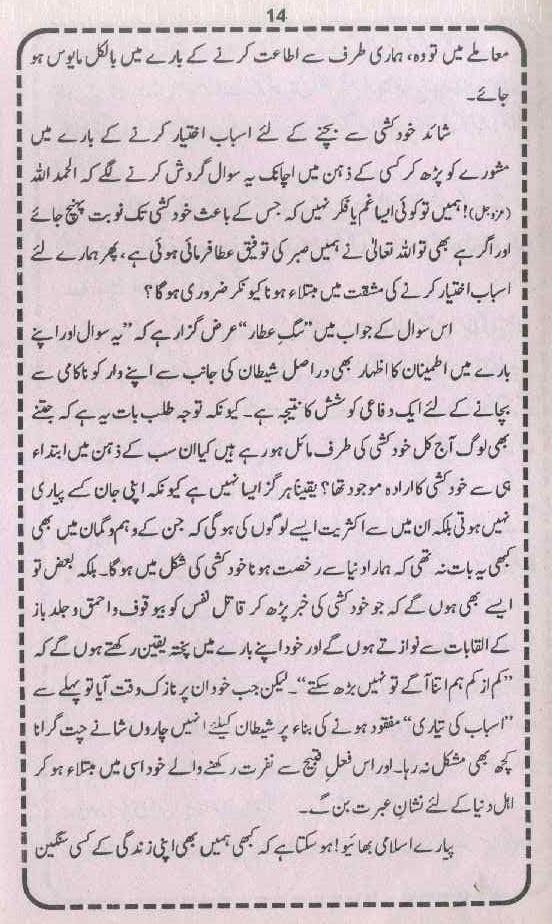 14
معاملے میں تو وہ، ہماری طرف سے اطاعت کرنے کے بارے میں بالکل مایوس ہو
جائے۔
شائد خودکشی سے بچنے کے لئے اسباب اختیار کرنے کے بارے میں
مشورے کو پڑھ کر کسی کے ذہن میں اچانک یہ سوال گردش کرنے لگے کہ الحمد اللہ
(عزوجل)! ہمیں تو کوئی ایسا غم یا فکر نہیں کہ جس کے باعث خودکشی تک نوبت پہنچ جائے
اور اگر ہے بھی تو اللہ تعالیٰ نے ہمیں صبر کی توفیق عطا فرمائی ہوئی ہے، پھر ہمارے لئے
اسباب اختیار کرنے کی مشقت میں مبتلاء ہونا کیونکر ضروری ہوگا؟
اس سوال کے جواب میں "سگِ عطار" عرض گزار ہے کہ "یہ سوال اور اپنے
بارے میں اطمینان کا اظہار بھی دراصل شیطان کی جانب سے اپنے وار کو ناکامی سے
بچانے کے لئے ایک دفاعی کوشش کا نتیجہ ہے۔ کیونکہ توجہ طلب بات یہ ہے کہ جتنے
بھی لوگ آج کل خودکشی کی طرف مائل ہو رہے ہیں کیا ان سب کے ذہن میں ابتداء
ہی سے خودکشی کا ارادہ موجود تھا؟ یقیناً ہرگز ایسا نہیں ہے کیونکہ اپنی جان کسے پیاری
نہیں ہوتی بلکہ ان میں سے اکثریت ایسے لوگوں کی ہوگی کہ جن کے وہم و گمان میں بھی
کبھی یہ بات نہ تھی کہ ہمارا دنیا سے رخصت ہونا خودکشی کی شکل میں ہوگا۔ بلکہ بعض تو
ایسے بھی ہوں گے کہ جو خودکشی کی خبر پڑھ کر قاتلِ نفس کو بیوقوف و احمق و جلد باز
کے القابات سے نوازتے ہوں گے اور خود اپنے بارے میں پختہ یقین رکھتے ہوں گے کہ
"کم از کم ہم اتنا آگے تو نہیں بڑھ سکتے"۔ لیکن جب خود ان پر نازک وقت آیا تو پہلے سے
"اسباب کی تیاری" مفقود ہونے کی بناء پر شیطان کیلئے انہیں چاروں شانے چت گرانا
کچھ بھی مشکل نہ رہا۔ اور اس فعلِ قبیح سے نفرت رکھنے والے خود اسی میں مبتلاء ہو کر
اہلِ دنیا کے لئے نشانِ عبرت بن گ۔
پیارے اسلامی بھائیو! ہو سکتا ہے کہ کبھی ہمیں بھی اپنی زندگی کے کسی سنگین